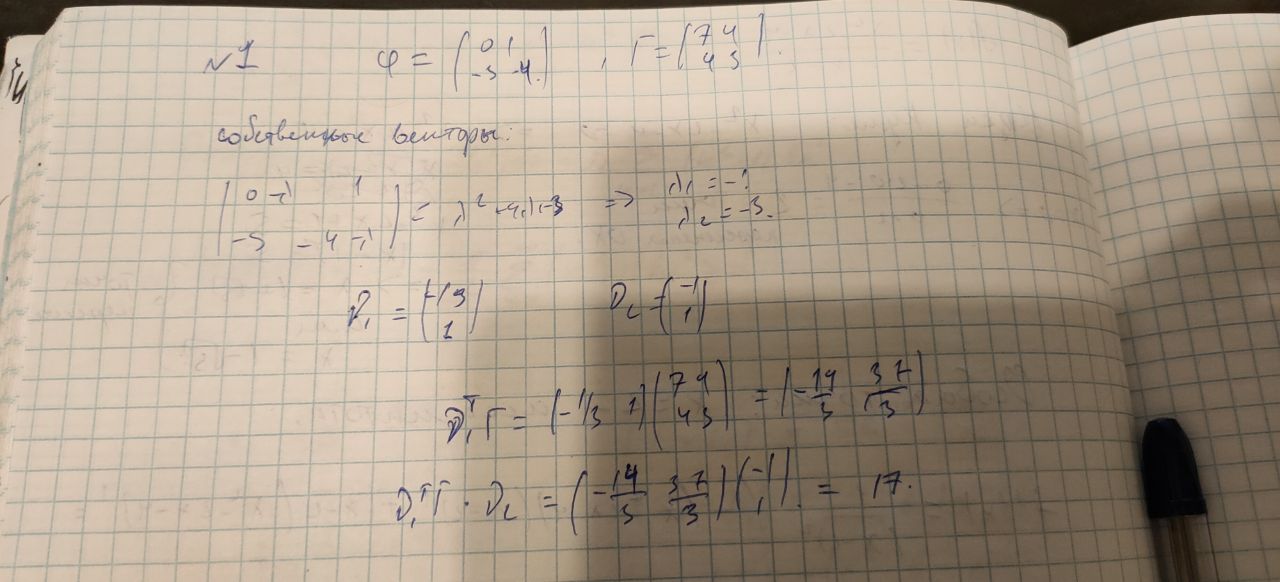 №1 φ = (0 1 -3 -4.) , Γ = (7 4 4 3).
собственные векторы:
|0-λ 1 -3 -4-λ| = λ² -4λ-3 => λ₁ = -1 λ₂ = -3.
D₁ = (-1/3 1) D₂ = (-1 1)
D₁ᵀΓ = (-1/3 1)(7 4 4 3) = (-14/3 37/3)
D₁ᵀΓ · D₂ = (-14/3 37/3)(-1 1) = 17.